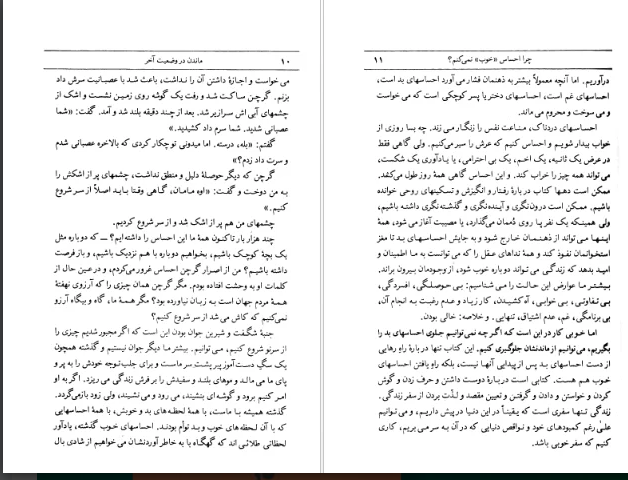 ۱۰ ماندن در وضعیت آخر
می خواست و اجازهٔ داشتن آن را نداشت، باعث شد با عصبانیت سرش داد
بزنم. گرچن ساکت شد و رفت یک گوشه روی زمین نشست و اشک از
چشمهای آبی اش سرازیر شد. بعد از چند دقیقه بلند شد و آمد. گفت: «شما
عصبانی شدید. شما سرم داد کشیدید.»
گفتم: «بله، درسته. اما میدونی تو چکار کردی که بالاخره عصبانی شدم
و سرت داد زدم؟»
گرچن که دیگر حوصلهٔ دلیل و منطق نداشت، چشمهای پر از اشکش را
به من دوخت و گفت: «اوه مامان، گاهی وقتا باید اصلاً از سر شروع
کنیم.»
چشمهای من هم پر از اشک شد و از سر شروع کردیم.
چند هزار بار تاکنون همهٔ ما این احساس را داشته ایم؟ ــ که دوباره مثل
یک بچهٔ کوچک باشیم، بخواهیم دوباره با هم نزدیک باشیم، و باز فرصت
داشته باشیم؟ من از اصرار گرچن احساس غرور می‌کردم، و در عین حال از
کلمات او به وحشت افتاده بودم. مگر گرچن همان چیزی را که آرزوی نهفتهٔ
همهٔ مردم جهان است به زبان نیاورده بود؟ مگر همهٔ ما، گاه و بیگاه آرزو
نمی‌کنیم که کاش می شد از سر شروع کنیم؟
جنبهٔ شگفت و شیرین جوان بودن این است که اگر مجبور شدیم چیزی را
از سر نو شروع کنیم، می‌توانیم. بیشتر ما دیگر جوان نیستیم و گذشته همچون
یک سگ دست آموز پیر پشت سر ماست و برای جلب توجه خودش را به پر و
پای ما می مالد و موهای بلند و سفیدش را بر فرش زندگی می ریزد. اگر به او
امر کنیم برود و گوشه ای بنشیند، می رود و می نشیند، ولی زود بازمی‌گردد.
گذشته همیشه با ماست، با همهٔ لحظه های بد و خوبش، با همهٔ احساسهایی
که با آن لحظه های خوب و بد توأم بودند. احساسهای خوب گذشته، یادآور
لحظاتی طلائی اند که گهگاه با به خاطر آوردنشان می‌خواهیم از شادی بال
چرا احساس «خوب» نمی‌کنم؟ ۱۱
درآوریم. اما آنچه معمولاً بیشتر به ذهنمان فشار می آورد احساسهای بد است،
احساسهای غم است، احساسهای دختر یا پسر کوچکی است که می خواست
و می سوخت و محروم می ماند.
احساسهای دردناک، مناعت نفس را زنگار می زند. چه بسا روزی از
خواب بیدار شویم و احساس کنیم که عرش را سیر می‌کنیم. ولی گاهی فقط
در عرض یک ثانیه، یک اخم، یک بی احترامی، یا یادآوری یک شکست،
می تواند همه چیز را خراب کند. و این احساس گاهی همهٔ روز طول می‌کشد.
ممکن است دهها کتاب در بارهٔ رفتار و انگیزش و تسکینهای روحی خوانده
باشیم. ممکن است درون نگری و آینده نگری و گذشته نگری داشته باشیم،
ولی همینکه یک نفر پا روی دُممان می‌گذارد، یا مصیبت آغاز می شود، همهٔ
اینها می تواند از ذهنمان خارج شود و به جایش احساسهای بد تا مغز
استخوانمان نفوذ کند و همهٔ نداهای عقل را که می توانست به ما اطمینان و
امید بدهد که زندگی می تواند دوباره خوب شود، از وجودمان بیرون براند.
بیشتر ما عوارض این حالت را می شناسیم: بی حوصلگی، افسردگی،
بی تفاوتی، بی خوابی، آه کشیدن، کار زیاد و عدم رغبت به انجام آن،
بی برنامگی، غم، عدم اشتیاق، تنهایی. و خلاصه: خالی بودن.
اما خوبی کار در این است که اگر چه نمی‌توانیم جلوی احساسهای بد را
بگیریم، می‌توانیم از ماندنشان جلوگیری کنیم. این کتاب تنها در بارهٔ راه رهایی
از دست احساسهای بد پس از پیدایی آنها نیست، بلکه راه یافتن احساسهای
خوب هم هست. کتابی است در بارهٔ دوست داشتن و حرف زدن و گوش
کردن و خواستن و دادن و گرفتن و تعیین مقصد و لذّت بردن از سفر زندگی.
زندگی تنها سفری است که یقیناً در این دنیا در پیش داریم، و می توانیم
علی‌رغم کمبودهای خود و نواقص دنیایی که در آن به سر می بریم، کاری
کنیم که سفر خوبی باشد.